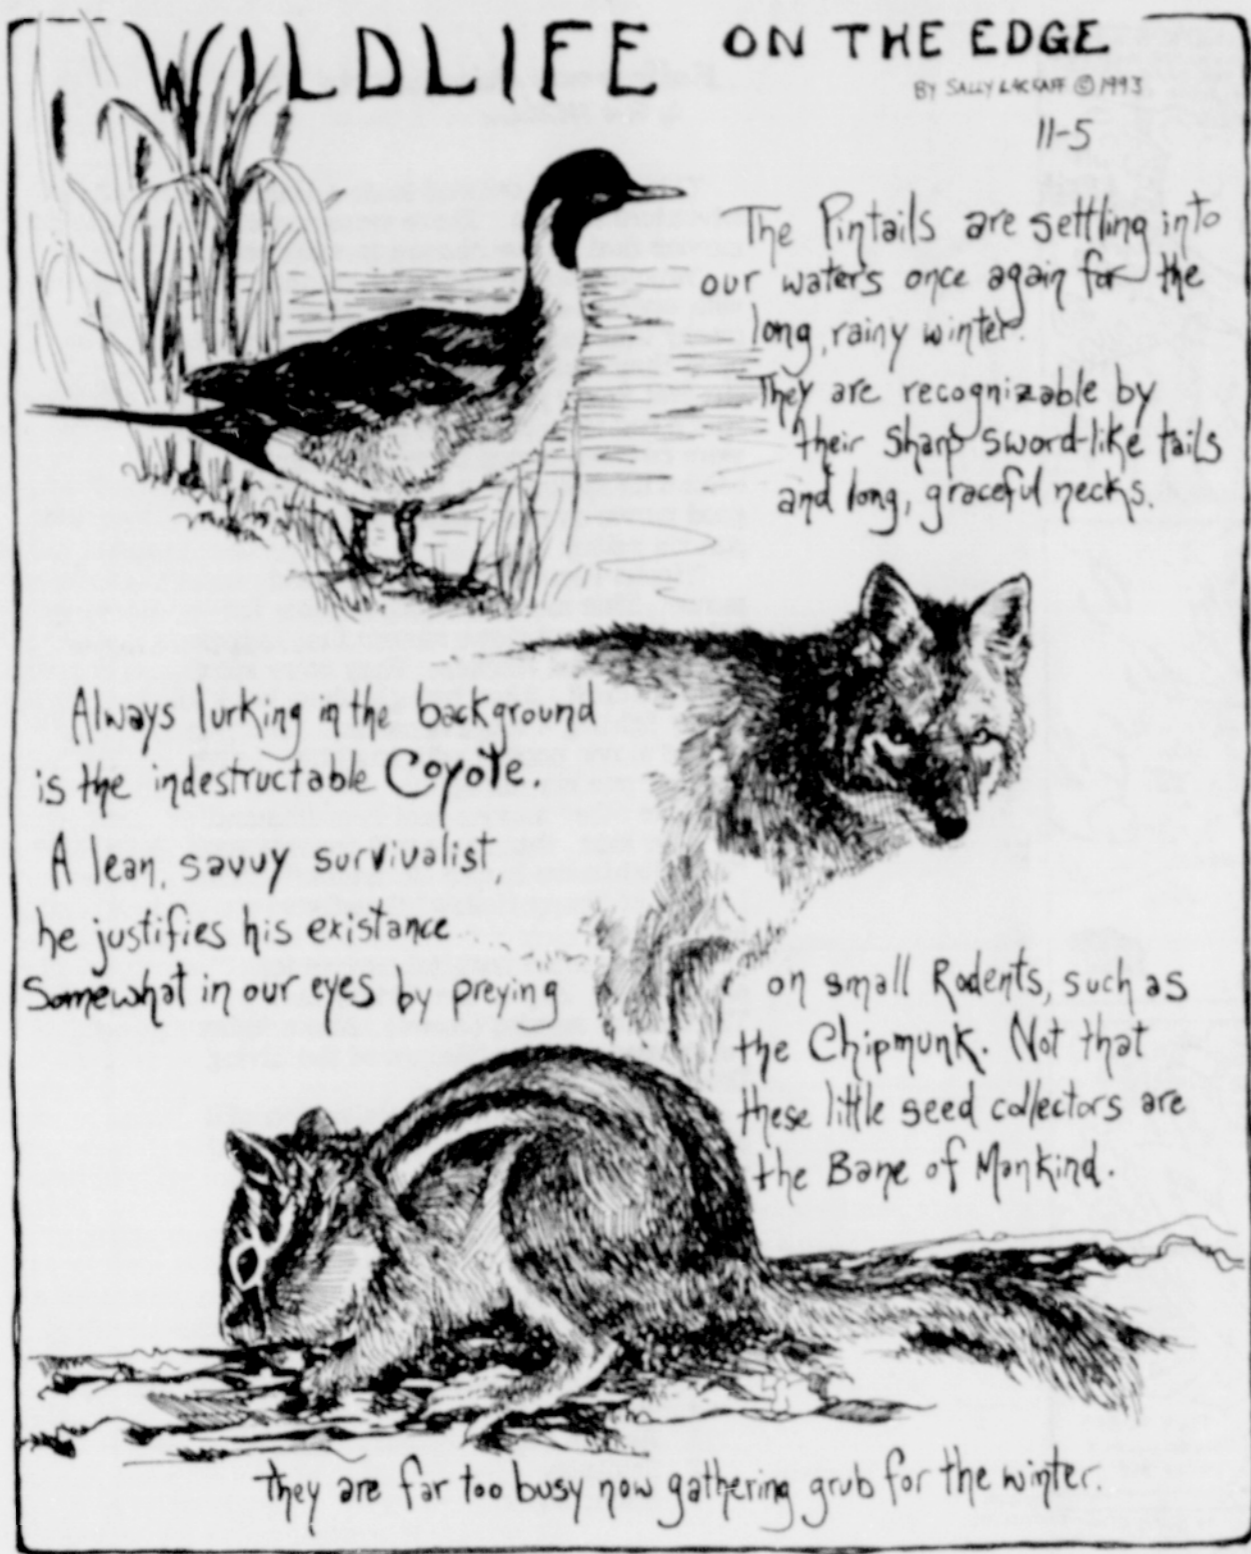 WILDLIFE ON THE EDGE
BY SALLY LACKAFF © 1993
11-5
The Pintails are settling into
our waters once again for the
long, rainy winter.
They are recognizable by
their sharp sword-like tails
and long, graceful necks.
Always lurking in the background
is the indestructable Coyote.
A lean, savvy survivalist,
he justifies his existance
Somewhat in our eyes by preying
on small Rodents, such as
the Chipmunk. Not that
these little seed collectors are
the Bane of Mankind.
They are far too busy now gathering grub for the winter.